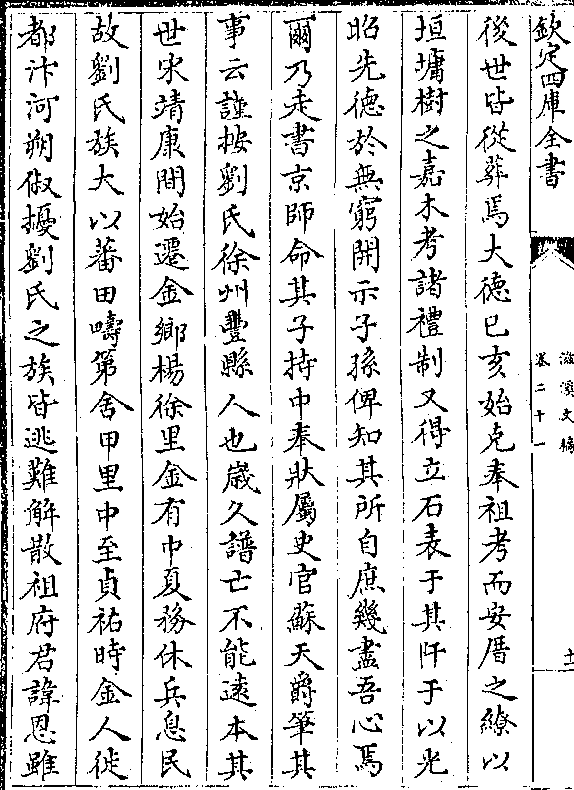 欽定四庫全書
滋溪文稿
卷二十一
十一
後世皆從葬焉大德已亥始克奉祖考而安厝之繚以
垣墉樹之嘉木考諸禮制又得立石表于其阡于以光
昭先德於無窮開示子孫俾知其所自庶幾盡吾心焉
爾乃走書京師命其子持中奉狀屬史官蘇天爵筆其
事云謹按劉氏徐州豐縣人也歲久譜亡不能逺本其
世宋靖康間始遷金鄉楊徐里金有中夏務休兵息民
故劉氏族大以蕃田疇第舍甲里中至貞祐時金人徙
都汴河朔俶擾劉氏之族皆逃難解散祖府君諱恩雖